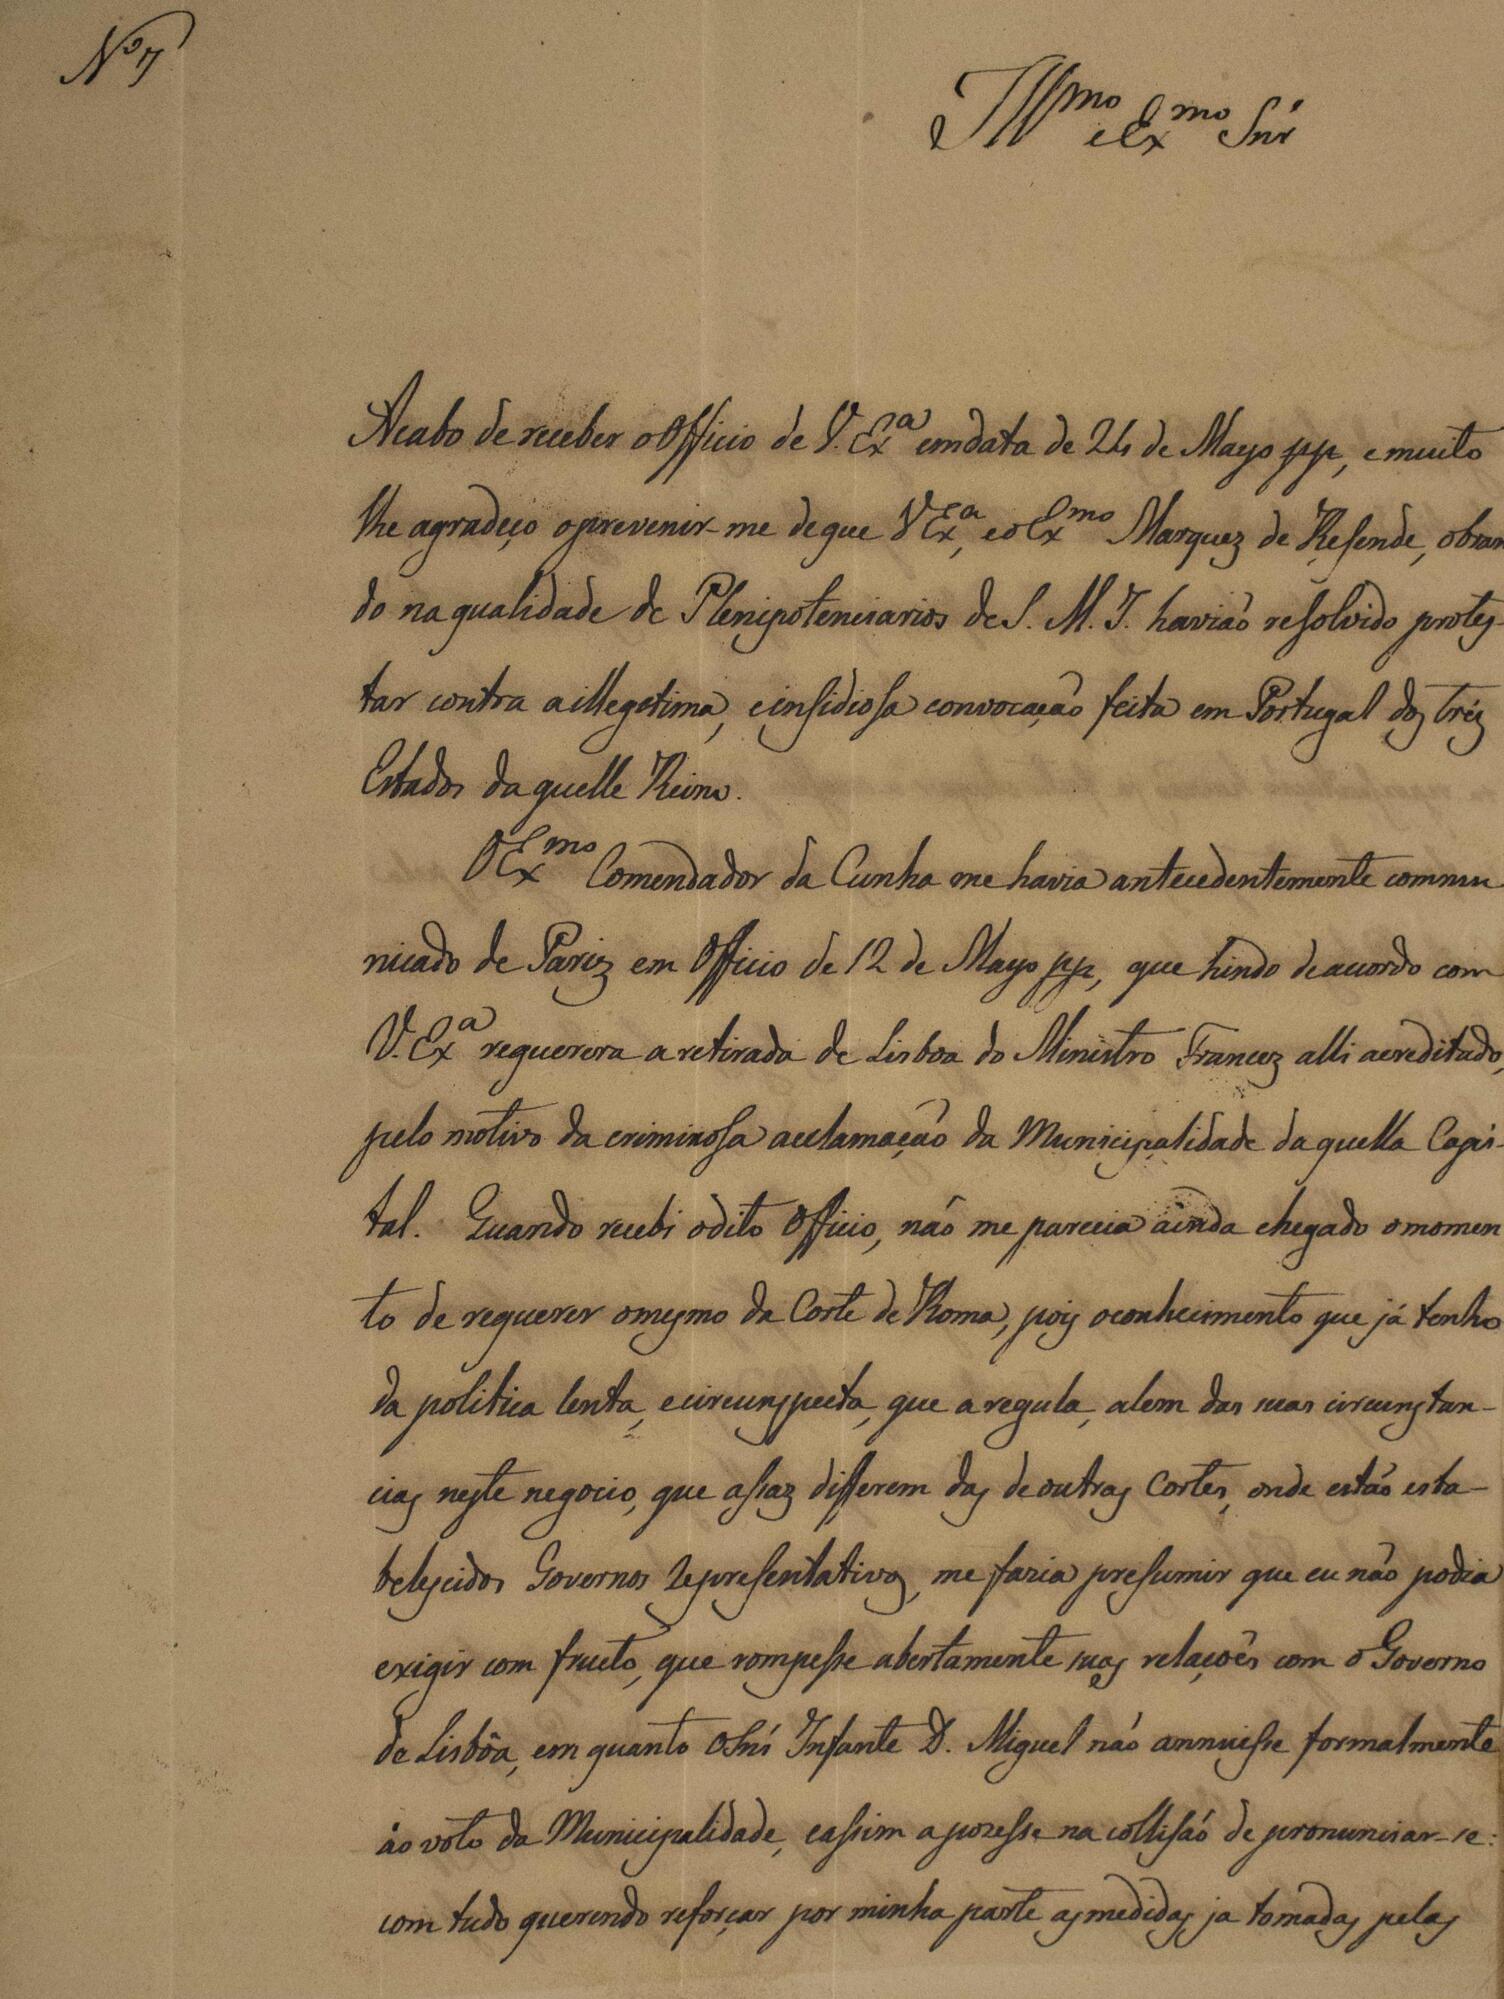 Nº 7
Illmo e Exmo Snr
Acabo de receber o Officio de V. Exa em data de 24 de Mayo pp, e muito
lhe agradeço o prevenir-me de que V Exa, e o Exmo Marquez de Resende, obran
do na qualidade de Plenipotenciarios de S. M. I. havião resolvido protes-
tar contra a illegetima, e insidiosa convocação feita em Portugal dos tres
Estados da quelle Reino.
O Exmo Comendador da Cunha me havia antecedentemente commu
nicado de Pariz em Officio de 12 de Mayo pp, que hindo de acordo com
V. Exa requerera a retirada de Lisboa do Ministro Francez alli acreditado,
pelo motivo da criminosa acclamação da Municipalidade da quella Capi-
tal. Quando recebi o dito Officio, não me parecia ainda chegado o momen
to de requerer o mesmo da Corte de Roma, pois o conhecimento que já tenho
da politica lenta, e circunspecta, que a regula, alem das suas circunstan-
cias neste negocio, que assaz differem das de outras Cortes, onde estão esta-
belescidos Governos representativos, me fazia presumir que eu não podia
exigir com fructo, que rompesse abertamente suas relaçoês com o Governo
de Lisbôa, em quanto o Snr Infante D. Miguel não annuisse formalmente
ào voto da Municipalidade, e assim a pozesse na collisão de pronunciar-se:
com tudo querendo reforçar por minha parte as medidas ja tomadas pelas